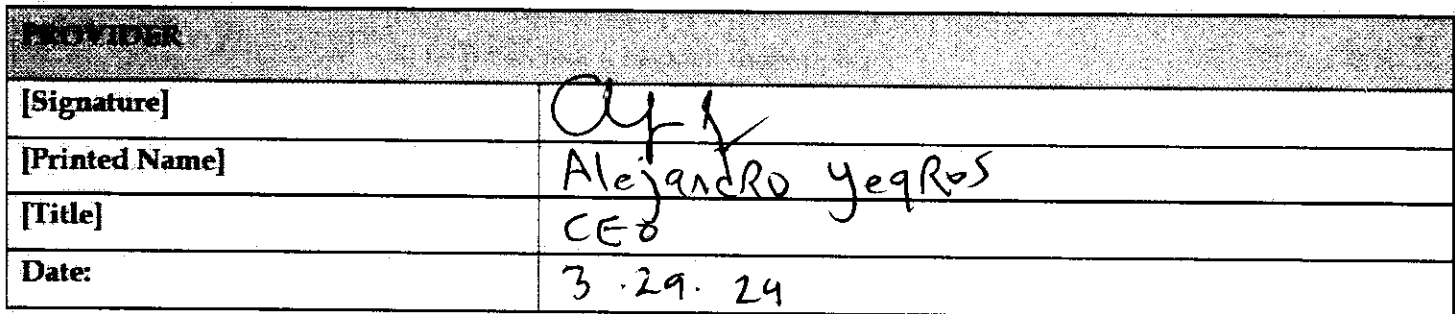 PROVIDER
[Signature]
[Printed Name] Alejandro YeqRos
[Title] CEO
Date: 3.29.24